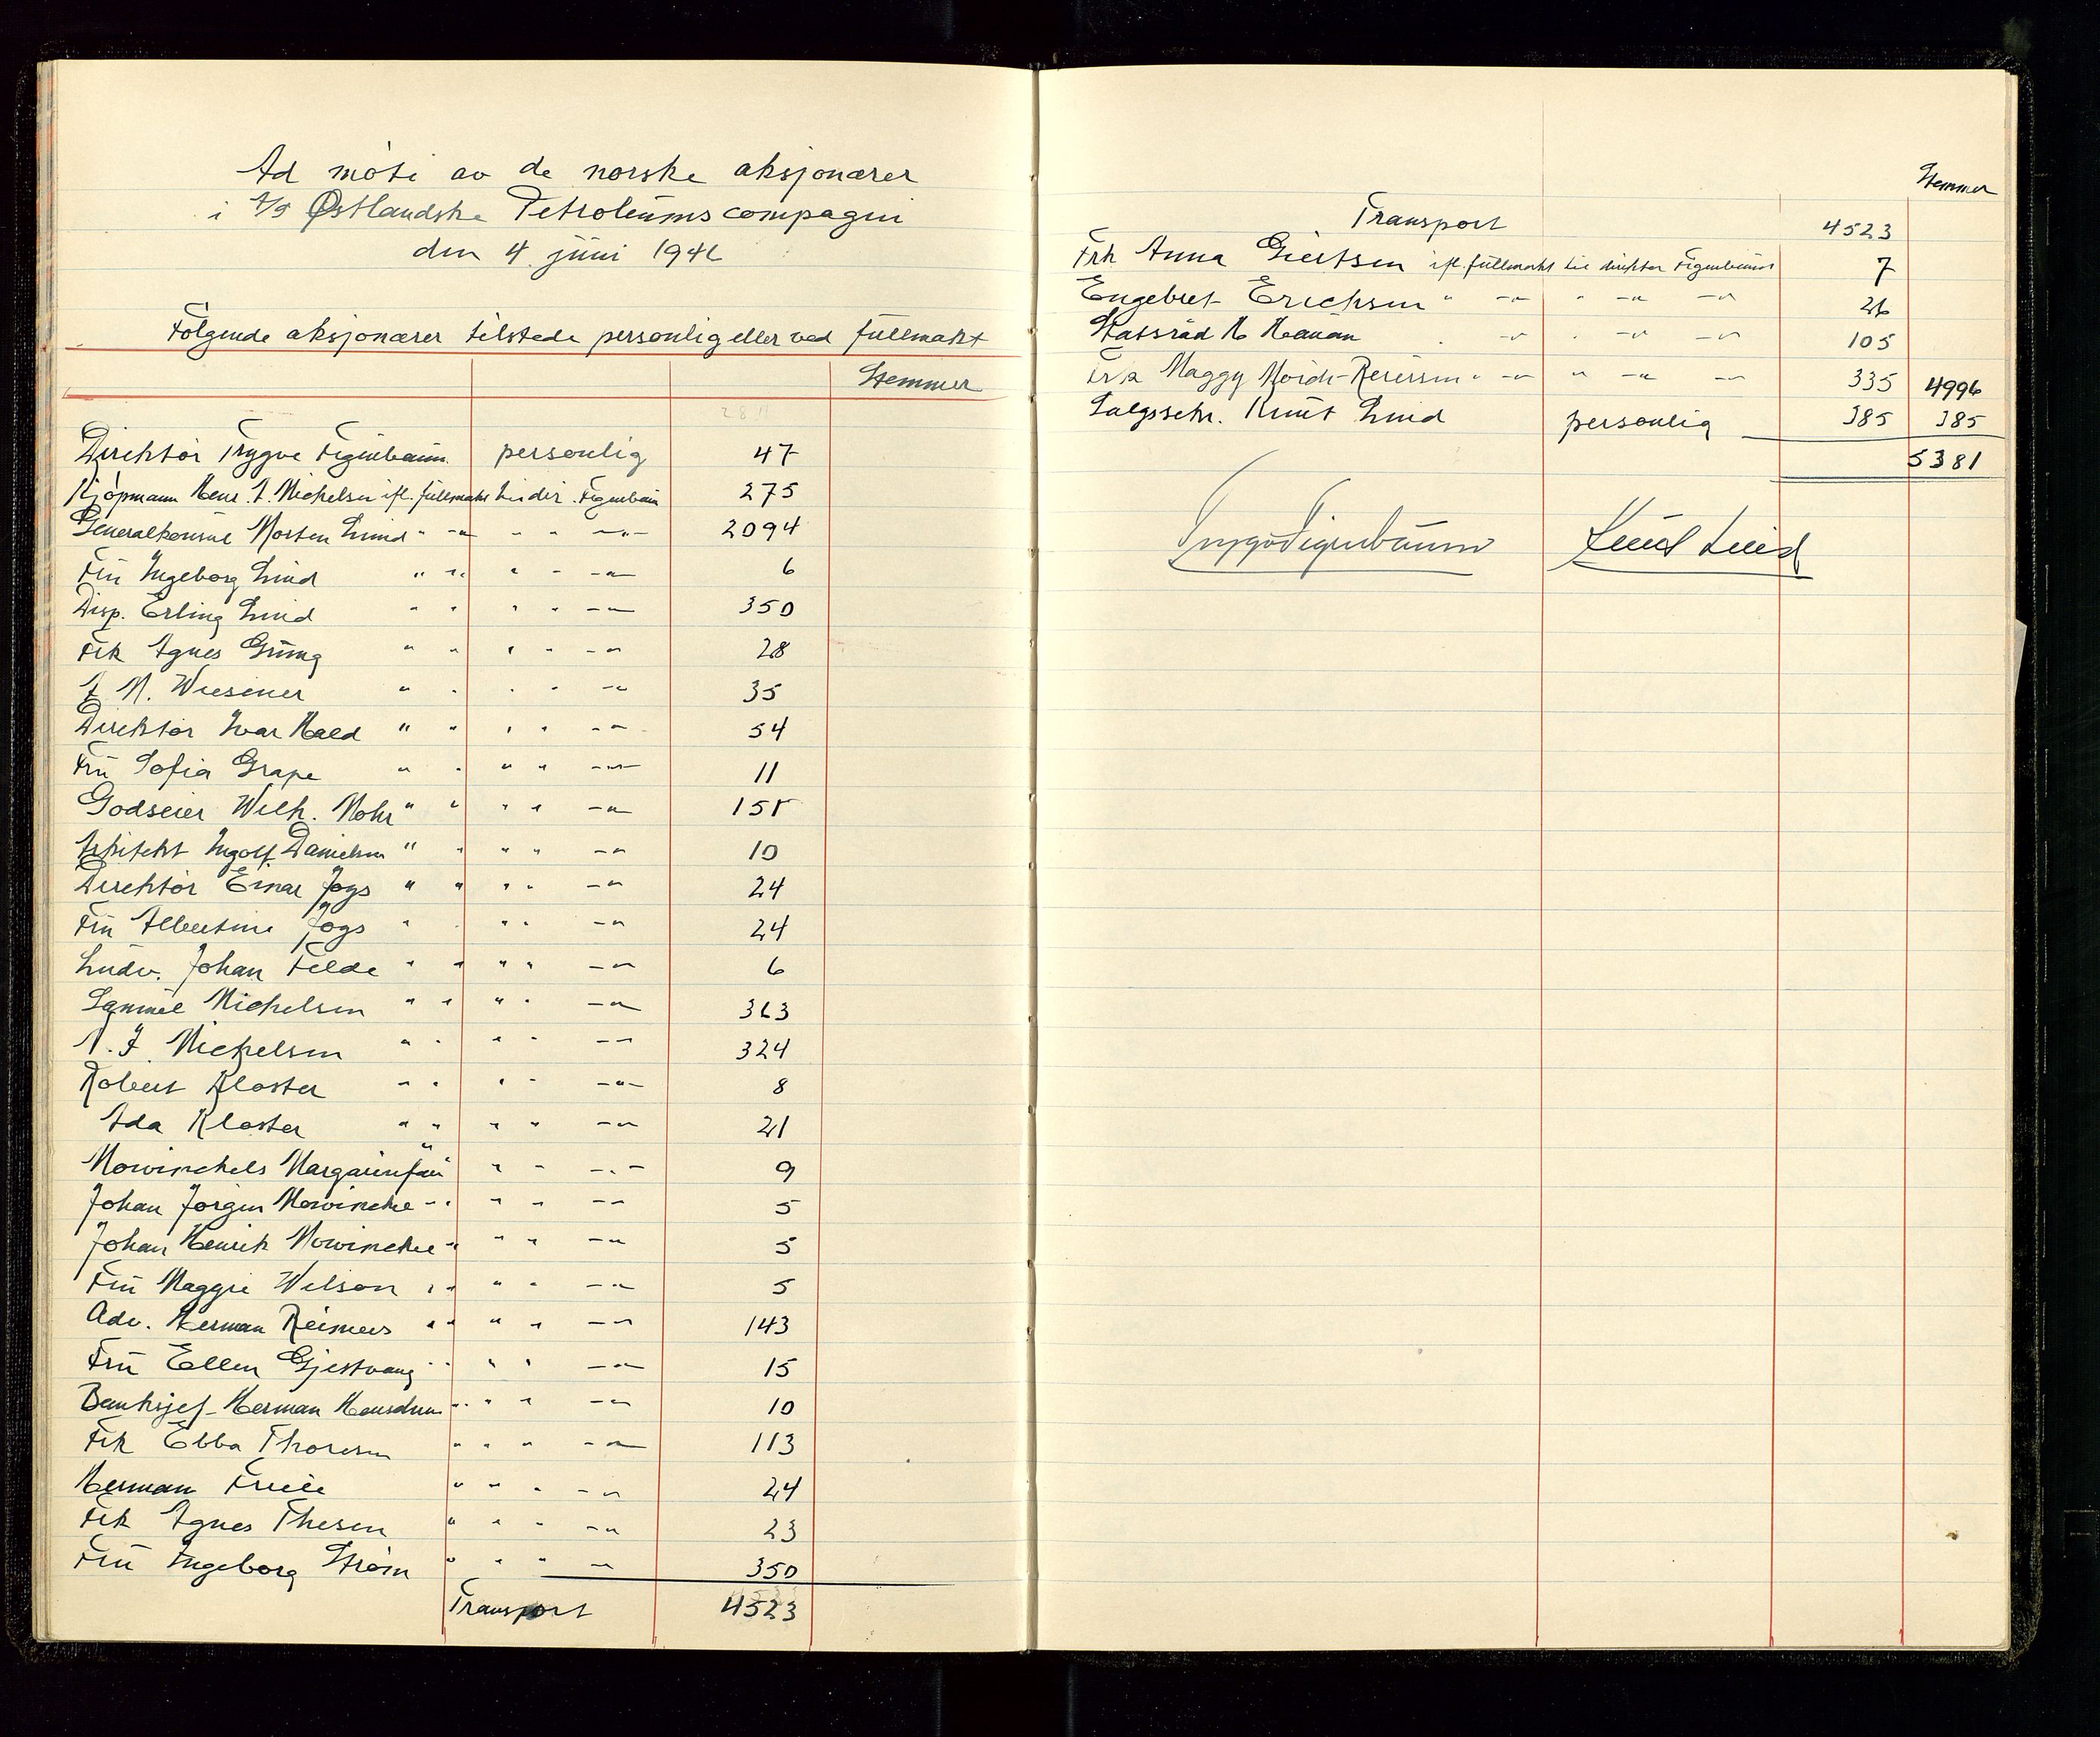 Ad møte av de norske aksjonærer
i A/S Østlandske Petroleumscompagni
den 4. juni 1946
Følgende aksjonærer tilstede personlig eller ved fullmakt
Stemmer
Direktør Trygve Figenbaum personlig 47
Kjøpmann Henr. A. Michelsen ifl. fullmakt til dir. Figenbaum 275
Generalkonsul Morten Lind " -"- " " -"- 2094
Fru Ingeborg Lind " " " " -"- 6
Disp. Erling Lind " " " " -"- 350
Frk Agnes Grung " " " " -"- 28
J. M. Wiesener " " " " -"- 35
Direktør Ivar Hald " " " " -"- 54
Fru Sofia Grape " " " " -"- 11
Godseier Wilh. Mohr " " " " -"- 155
Arkitekt Ingolf Danielsen " " " " -"- 10
Direktør Einar Jogs " " " " -"- 24
Fru Albertine Jogs " " " " -"- 24
Ludv. Johan Felde " " " " -"- 6
Samuel Michelsen " " " " -"- 363
N. J. Michelsen " " " " -"- 324
Robert Kloster " " " " -"- 8
Ada Kloster " " " " -"- 21
Mowinckels Margarinfabr " " " -"- 9
Johan Jørgen Mowinckel " " " " -"- 5
Johan Henrik Mowinckel " " " -"- 5
Fru Maggie Wilson " " " " -"- 5
Adv. Herman Reimers " " " " -"- 143
Fru Ellen Gjestvang " " " " -"- 15
Banksjef Herman " " " -"- 10
Frk Ebba Thoresen " " " -"- 113
Herman Friele " " " -"- 24
Frk Agnes Thesen " " " -"- 23
Fru Ingeborg Strøm " " " -"- 350
Transport 4523
Stemmer
Transport 4523
Frk Anna Giertsen ifl. fullmakt til direktør Figenbaum 7
Engebret Erichsen " -"- " -"- -"- 26
Statsråd H. Hauan " -"- " -"- -"- 105
Frk Maggy -Reiersen " -"- " -"- -"- 335 4996
Salgssekr. Knut Lind personlig 385 385
5381
Trygve Figenbaum Knut Lind